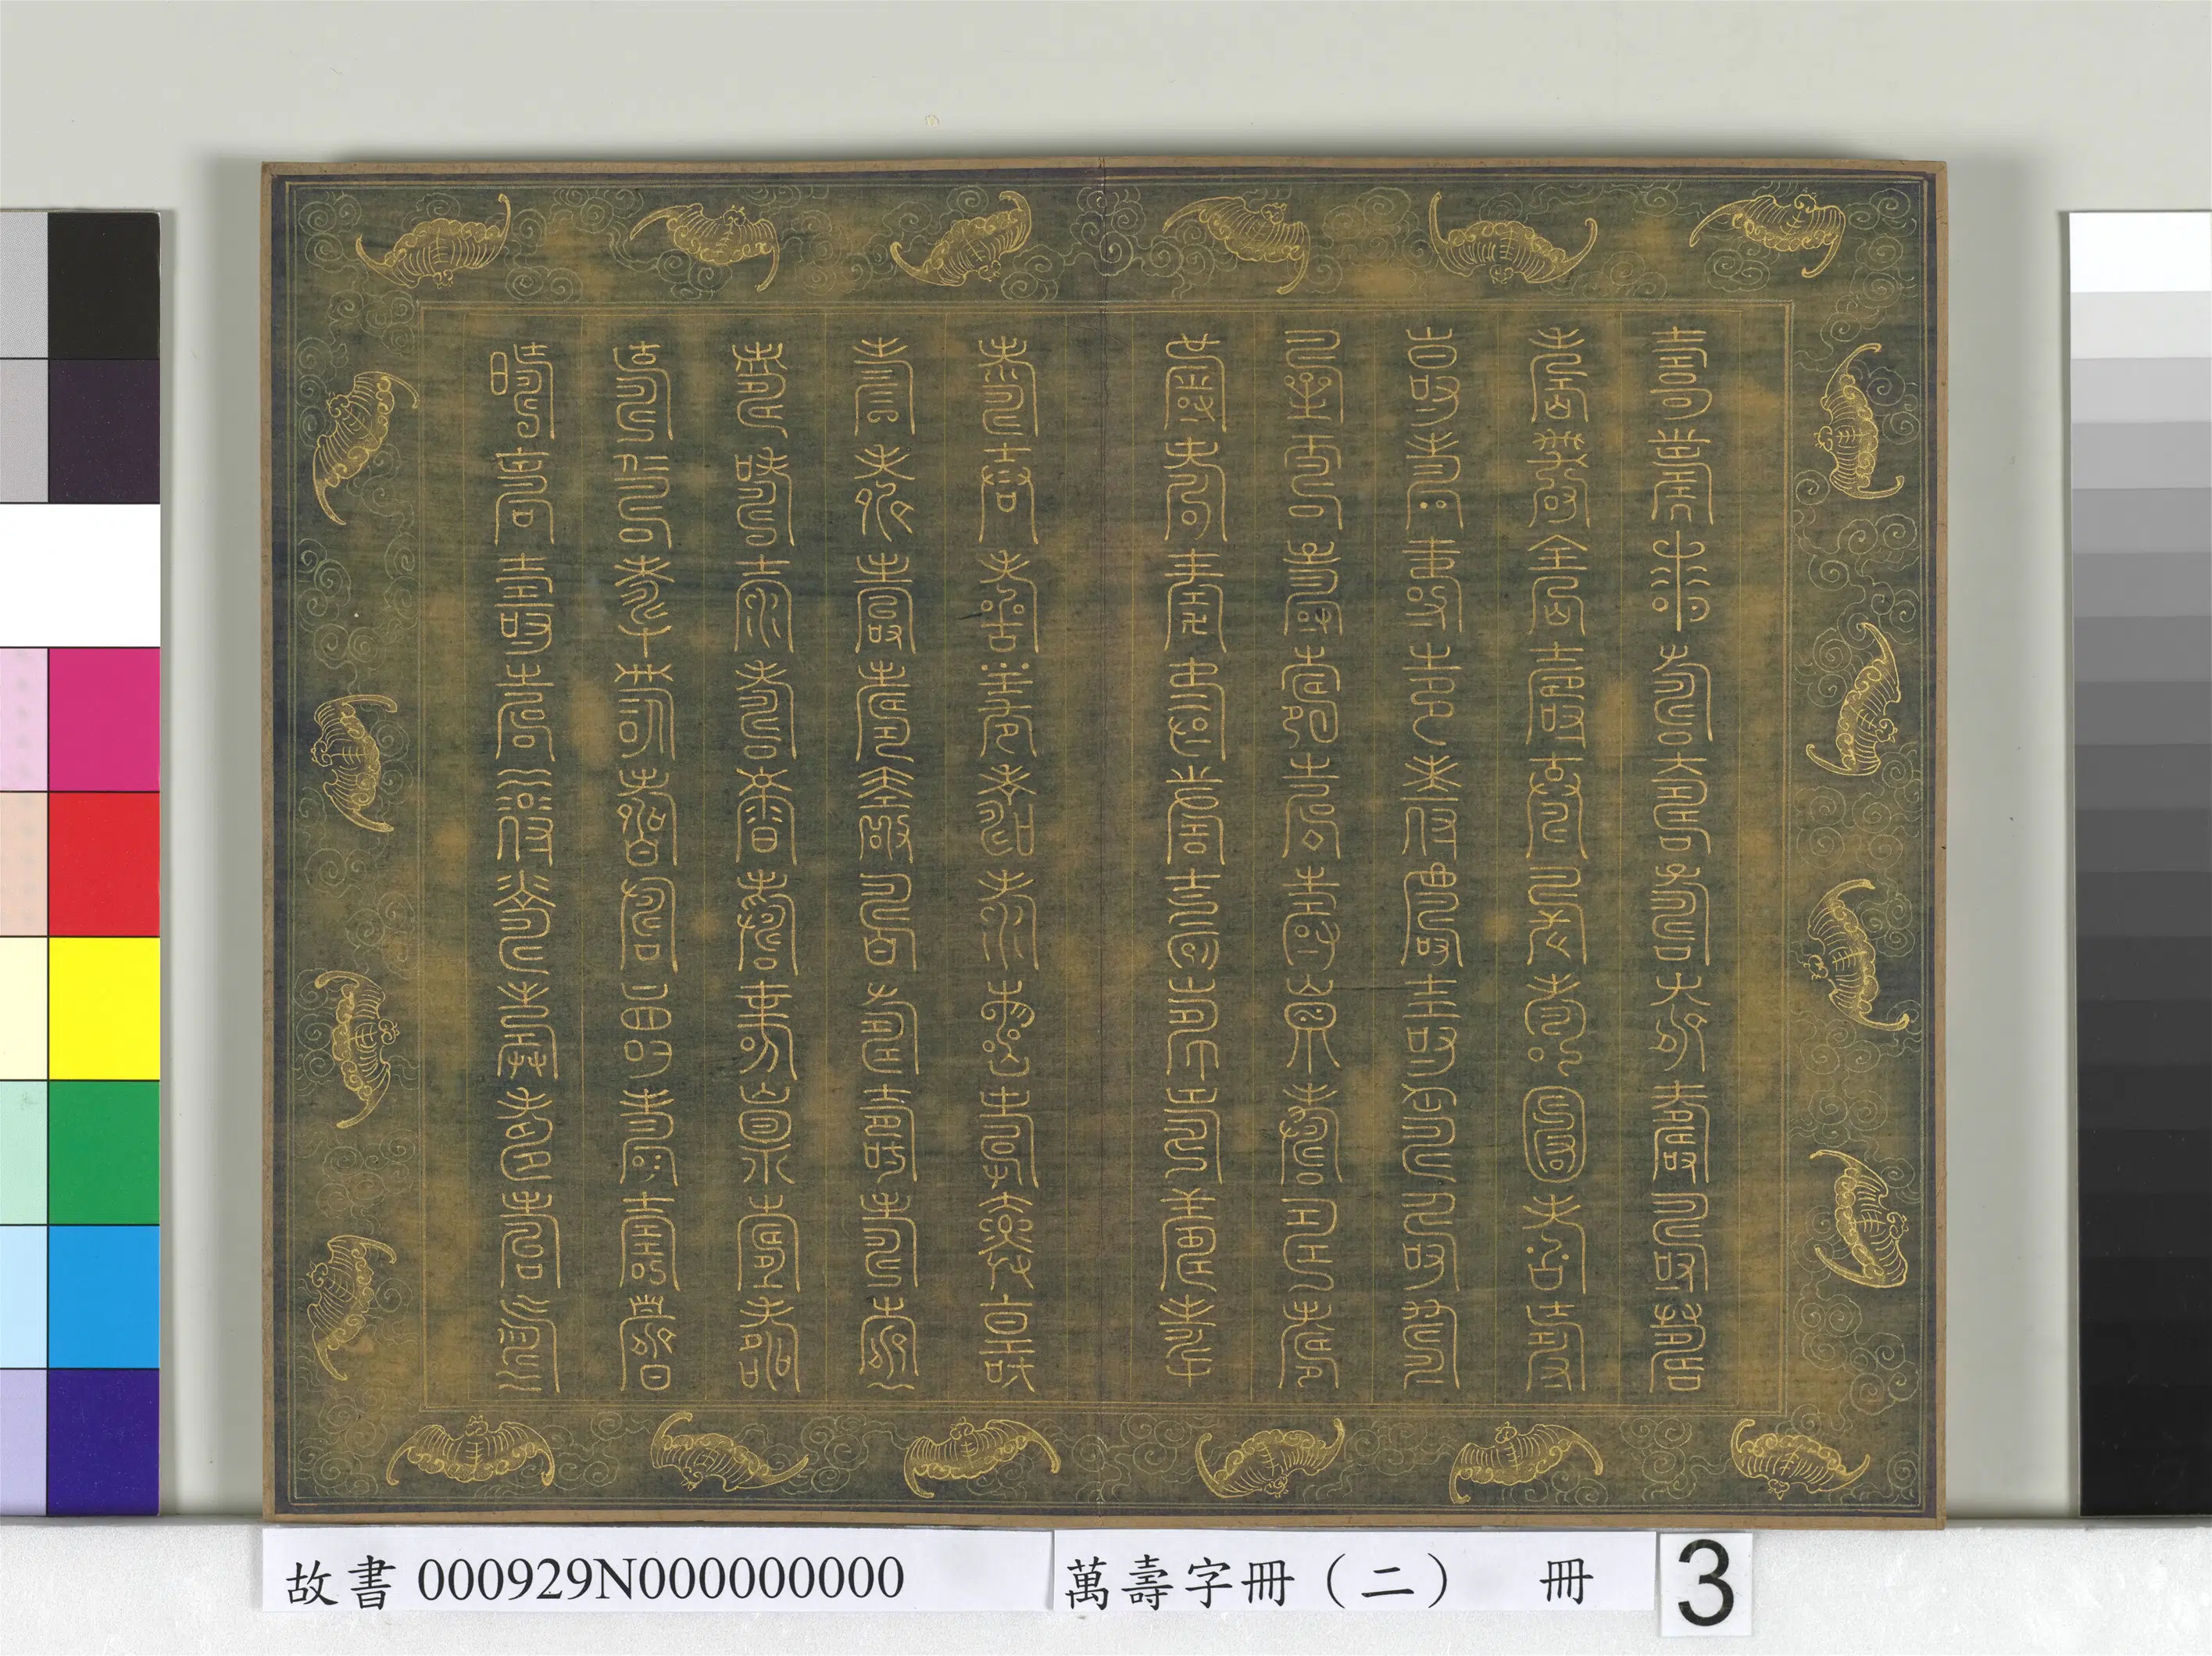 壽壽壽壽壽壽壽壽壽壽
壽壽壽壽壽壽壽壽壽壽
壽壽壽壽壽壽壽壽壽壽
壽壽壽壽壽壽壽壽壽壽
壽壽壽壽壽壽壽壽壽壽
壽壽壽壽壽壽壽壽壽壽
壽壽壽壽壽壽壽壽壽壽
壽壽壽壽壽壽壽壽壽壽
壽壽壽壽壽壽壽壽壽壽
壽壽壽壽壽壽壽壽壽壽
故書 000929N000000000
萬壽字冊（二） 冊
3